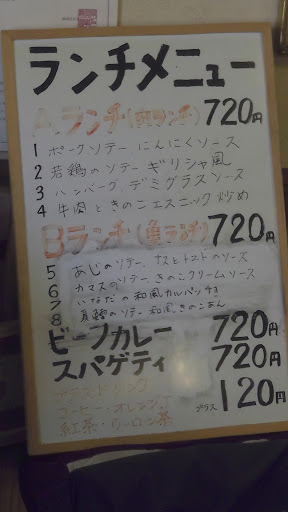 ランチメニュー
A.ランチ(肉ランチ) 720円
1 ポークソテー にんにくソース
2 若鶏のソテー ギリシャ風
3 ハンバーグ、デミグラスソース
4 牛肉ときのこエスニック炒め
Bランチ(魚ランチ) 720円
5 あじのソテー ナスとトマトのソース
6 カマスのソテー きのこクリームソース
7 いなだの和風カルパッチョ
8 真鯛のソテー 和風きのこあん
ビーフカレー 720円
スパゲティ 720円
アフタードリンク
コーヒー・オレンジ プラス 120円
紅茶・ウーロン茶